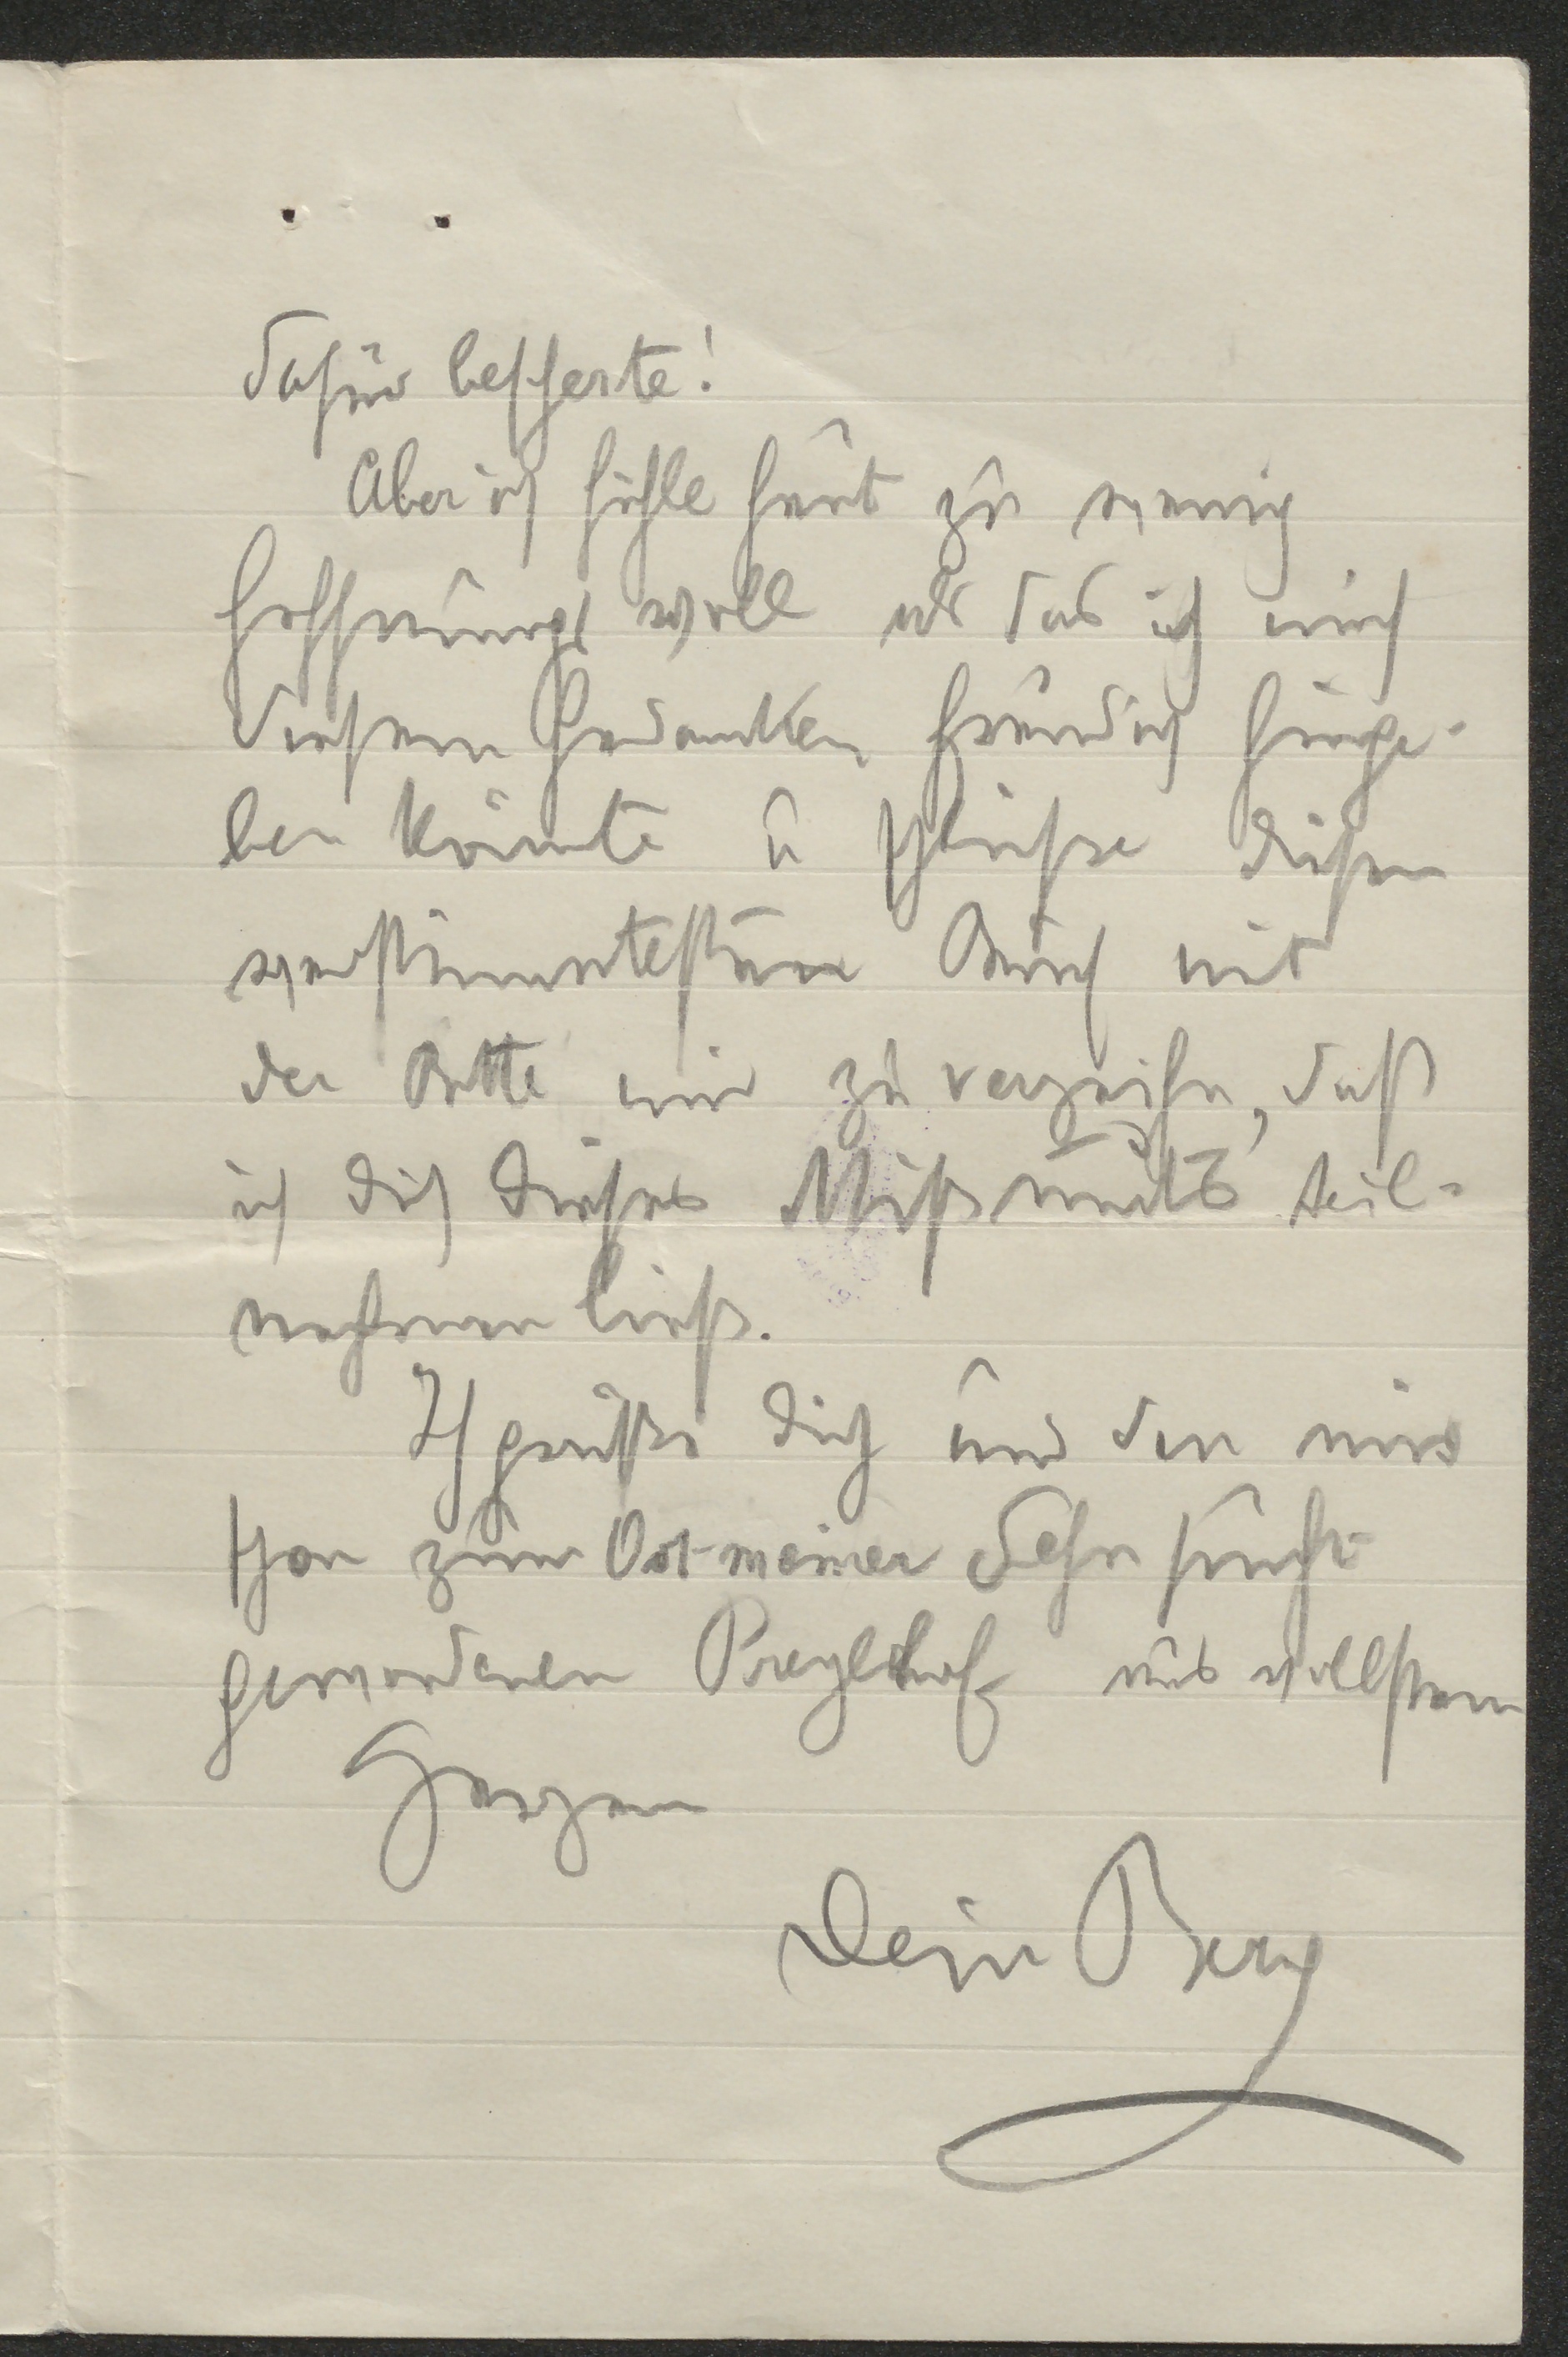 dafür bescherte!
Aber ich fühle heut zu wenig
hoffnungsvoll als das ich mich
diesem Gedanken freudig hinge-
ben könnte u schließe diesen
verstimmtesten Brief mit
der Bitte mir zu verzeihn, daß
ich dich dieses Mißmuts teil-
nehmen ließ.
Ich grüße dich und den mir
schon zum Ort meiner Sehnsucht
gewordenen Preglhof aus vollstem
Herzen
Dein Berg